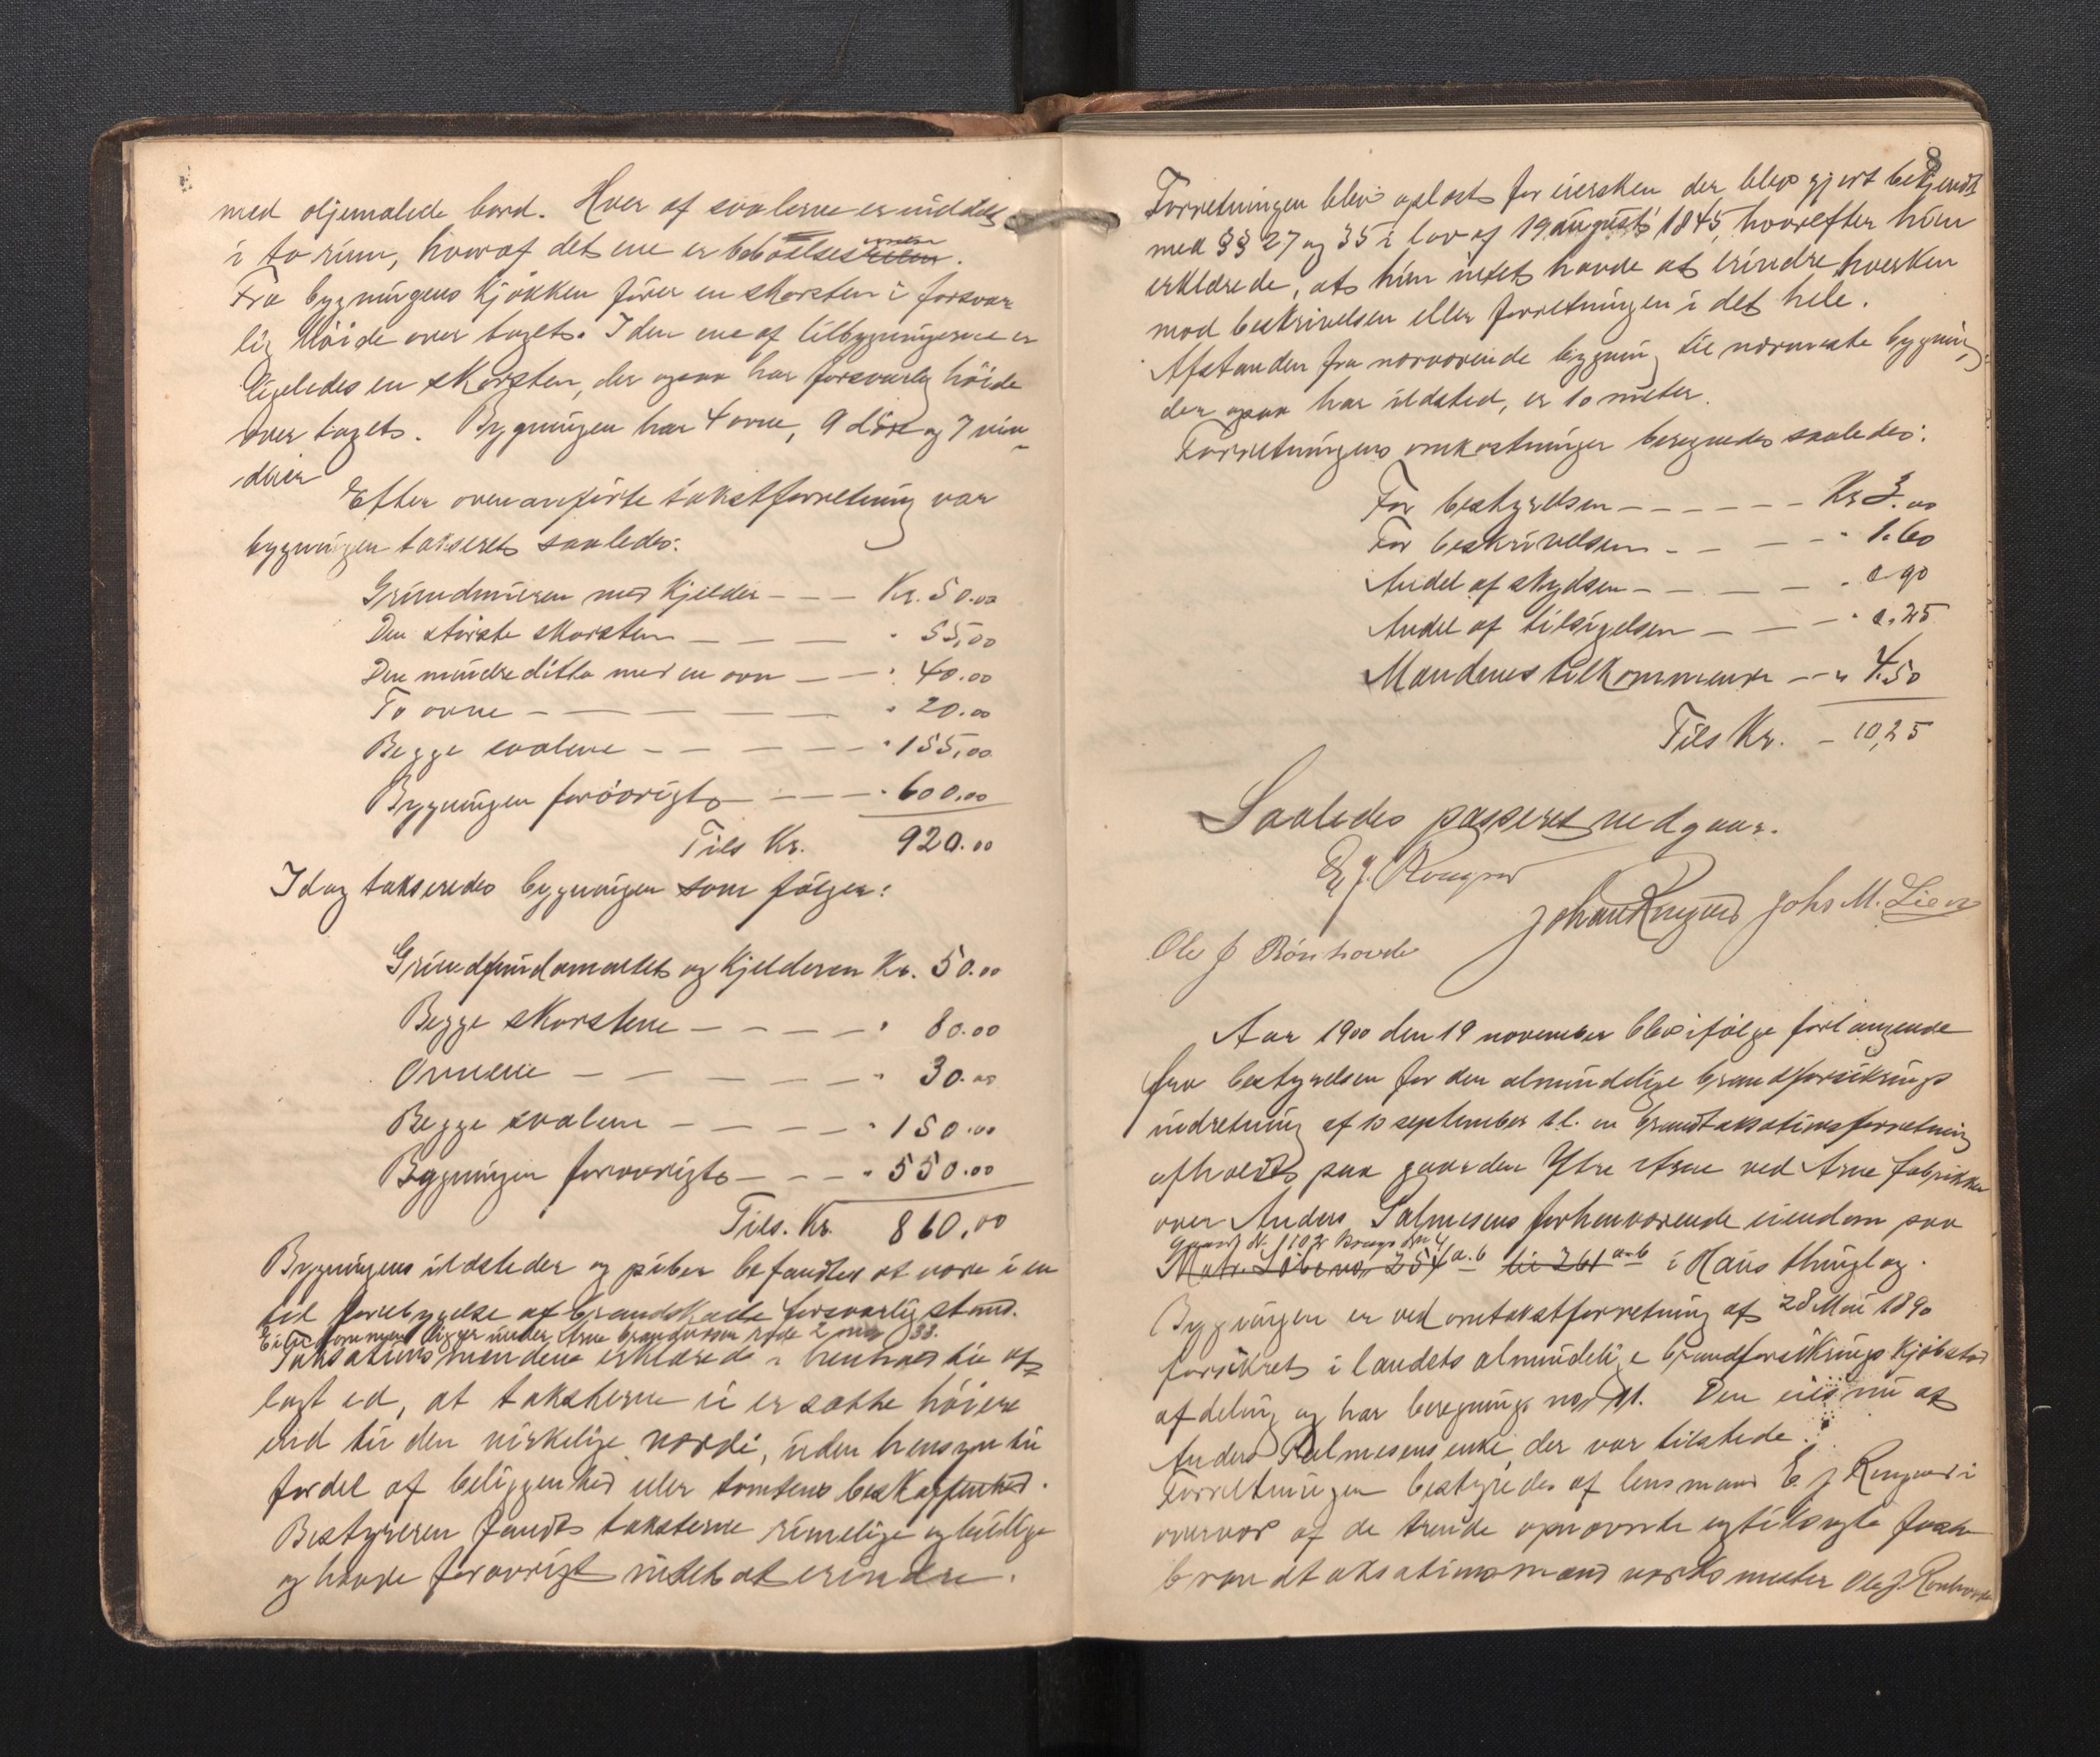 med oljemalede bord. Hver af svalerne er inddelt
i to rum, hvoraf det ene er beboelses
Fra bygningens kjøkken fører en skorsten i forsvar
lig høide over taget. I den ene af tilbygningerne er
ligeledes en skorsten, der ogsaa har forsvarlig høide
over taget. Bygningen har 4 ovne, 9 døre og 7 vin-
duer
Efter ovenanførte takstforretning var
bygningen takseret saaledes:
Grundmuren med kjelder - - - Kr. 50.00
Den største skorsten - - - " 55,00
Den mindre ditto med en ovn - - " 40.00
To ovne - - - - - " 20.00
Begge svalene - - - - - " 155,00
Bygningen forøvrigt - - - " 600,00
Tils Kr. 920.00
Idag takseredes bygningen som følger:
Grundfundamentet og kjelderen Kr. 50.00
Begge skorstene - - - - " 80.00
Ovnene - - - - - " 30.00
Begge svalene - - - - " 150.00
Bygningen forøvrigt - - - " 550.00
Tils. Kr. 860,00
Bygningens ildsteder og piber befandtes at være i en
til forebyggelse af brandskade forsvarlig stand.
Eiendommen ligger under Arne brandvæsen rode 2 no 33.
Taksationsmændene erklærede i henhold til af-
lagt ed, at taksterne ei er satte høiere
end til den virkelige værdi, uden hensyn til
fordel af beliggenhed eller tomtens beskaffenhed.
Bestyreren fandt taksterne rimelige og billige
og havde forøvrigt intet at erindre.
8
Forretningen blev oplæst for eiersken der blev gjort bekjendt
med §§ 27 og 35 i lov af 19 august 1845, hvorefter hun
erklærede, at hun intet havde at erindre hverken
mod beskrivelsen eller forretningen i det hele.
Afstanden fra nærværende bygning til nærmeste bygning,
der ogsaa har ildsted, er 10 meter.
Forretningens omkostninger beregnedes saaledes:
For bestyrelsen - - - - - - Kr 3.00
For beskrivelsen - - - - " 1.60
Andel af skydsen - - - - " 0 90
Andel af tilsigelsen - - - " 0.25
Mændenes tilkommende - - " 4.50
Tils Kr. - 10,25
Saaledes passeret vedgaar.
E. J. Ringard
Johan Ringard Johs M. Lien
Ole J Rønhovde
Aar 1900 den 19 november blev ifølge forlangende
fra bestyrelsen for den almindelige brandforsikrings
indretning af 10 september d.l. en brandtaksationsforretning
afholdt paa gaarden Ytre Arne ved Arne fabrikker
over Anders Salmesens forhenværende eiendom paa
Gaards N. 110 Brugs No 4
Matr. Løbeno. 254 a.b til 261 a.b i Haus thinglag.
Bygningen er ved omtakstforretning af 28 Mai 1890
forsikret i landets almindelige brandforsikrings kjøbstad
afdeling og har beregnings no 11. Den eies nu af
Anders Salmesens enke, der var tilstede.
Forretningen bestyredes af lensmand E. J Ringard i
overvær af de trende opnævnte og tilsagte faste
brandtaksationsmænd værksmester Ole J. Rønhovde